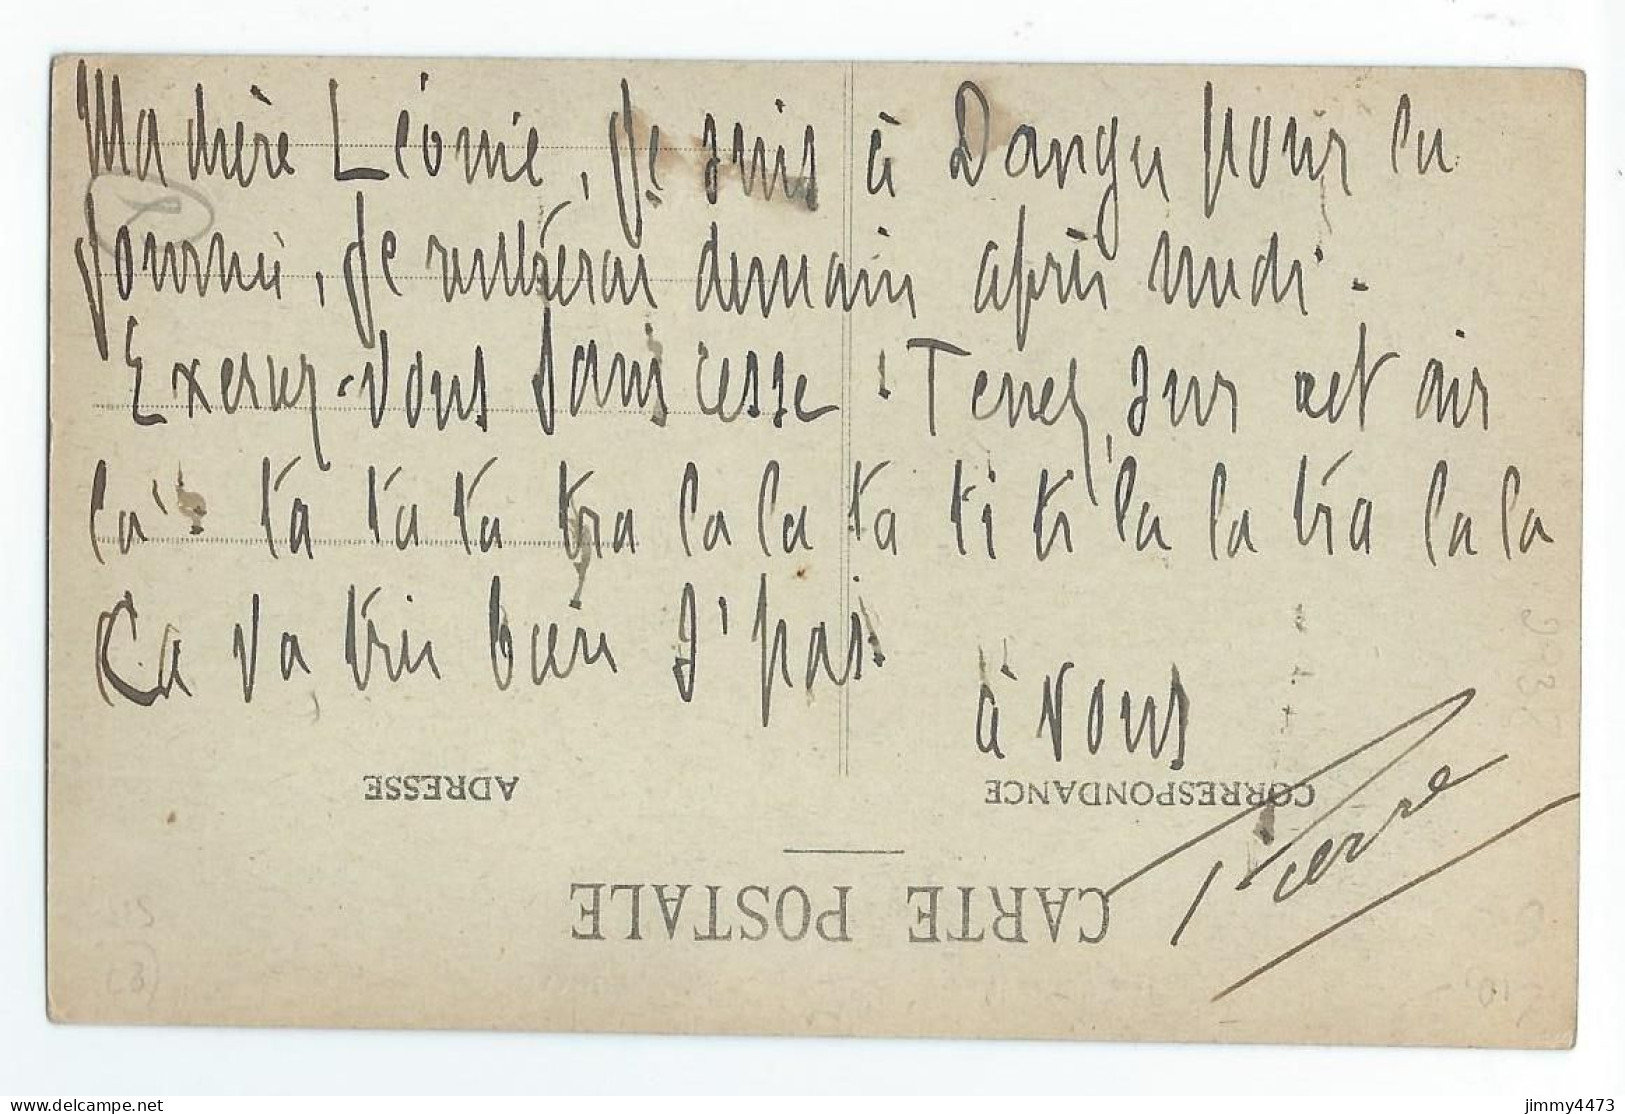 Ma chère Léonie, Je suis à Dangu pour la
journée, Je rentrerai demain après midi.
Exercez-vous sans cesse. Tenez, sur cet air
là : ta ta ta tra la la ta ti ti la la tra la la
Ça va très bien
à vous
Pierre
ADRESSE
CORRESPONDANCE
CARTE POSTALE
delcampe.net
jimmy4473